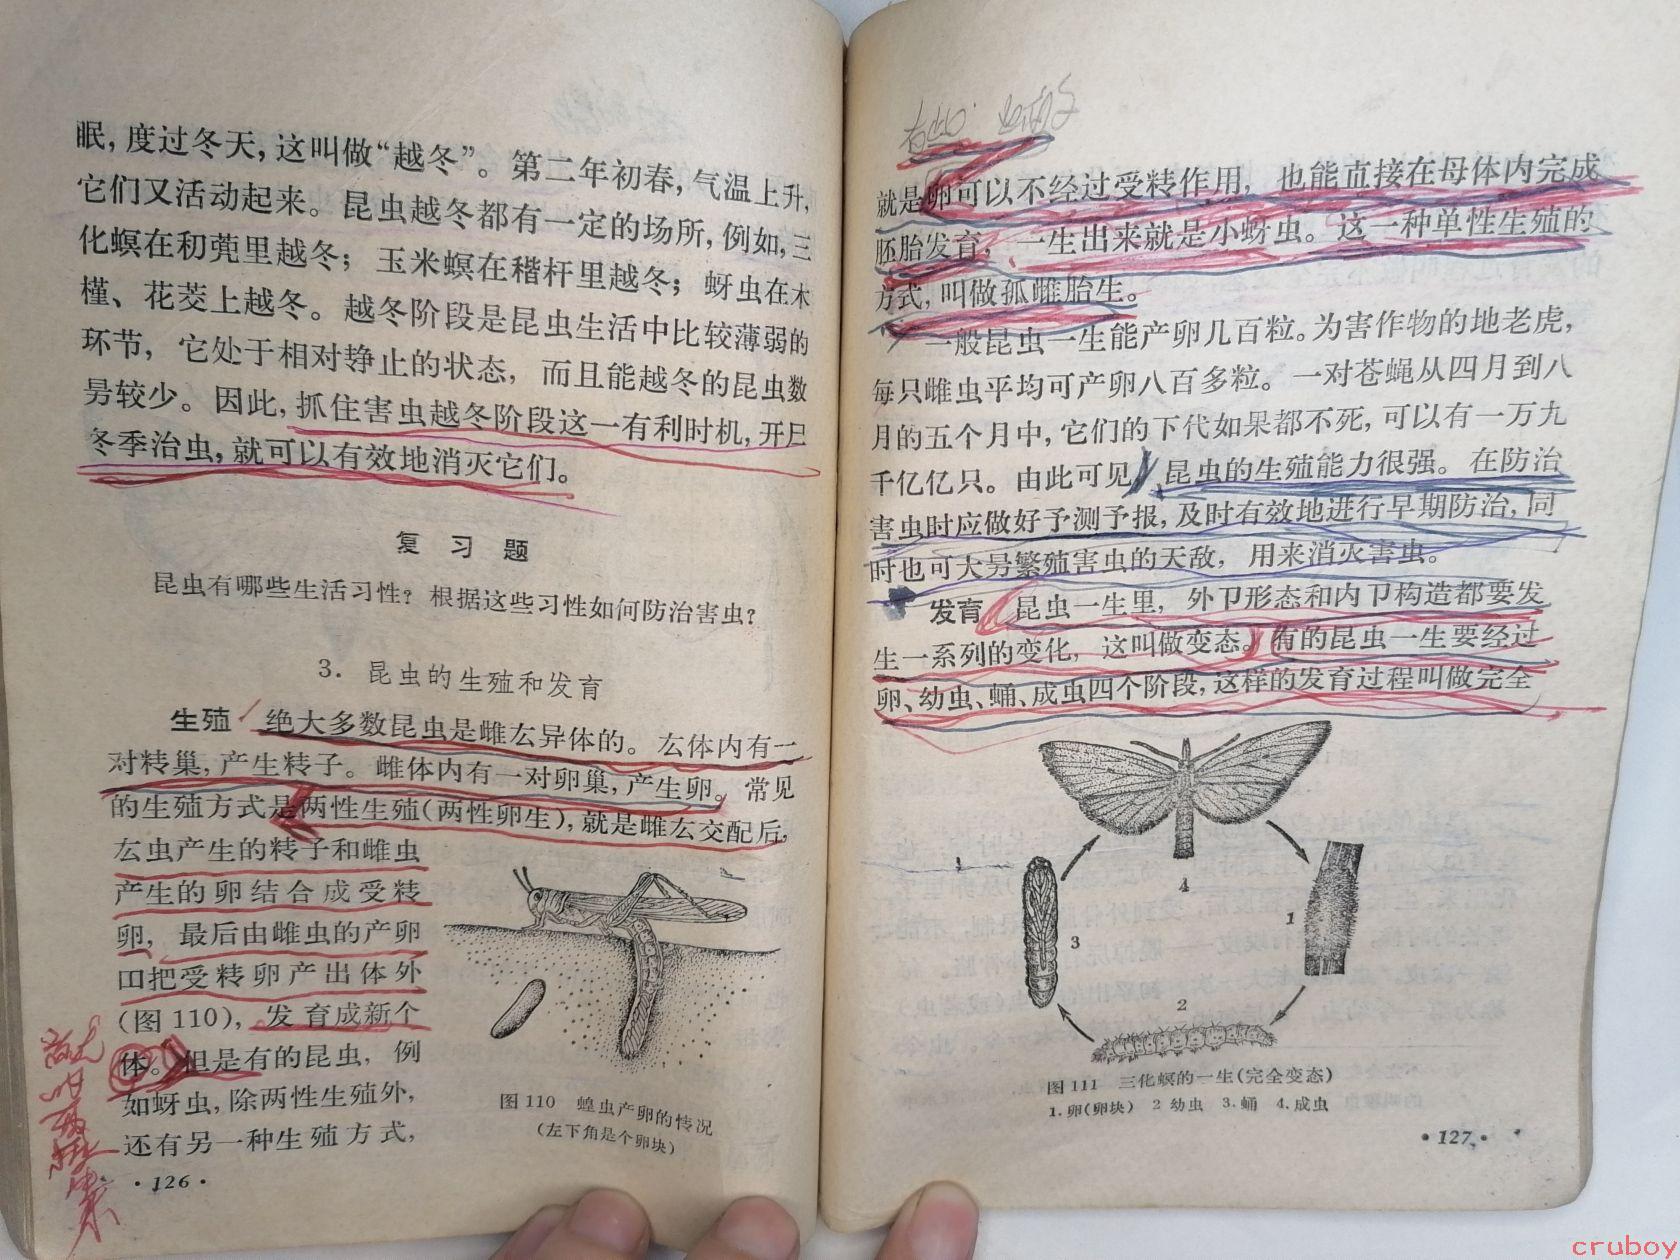 眠，度过冬天，这叫做“越冬”。第二年初春，气温上升，
它们又活动起来。昆虫越冬都有一定的场所，例如，三
化螟在䄧蔸里越冬；玉米螟在稭杆里越冬；蚜虫在木
槿、花茭上越冬。越冬阶段是昆虫生活中比较薄弱的
环节，它处于相对竫止的状态，而且能越冬的昆虫数
量较少。因此，抓住害虫越冬阶段这一有利时机，开展
冬季治虫，就可以有效地消灭它们。
复 习 题
昆虫有哪些生活习性？根据这些习性如何防治害虫？
3. 昆虫的生殖和发育
生殖 绝大多数昆虫是雌厷异体的。厷体内有一
对精巢，产生精子。雌体内有一对卵巢，产生卵。常见
的生殖方式是两性生殖(两性卵生)，就是雌厷交配后，
厷虫产生的精子和雌虫
产生的卵结合成受精
卵，最后由雌虫的产卵
口把受精卵产出体外
(图 110)，发育成新个
体。但是有的昆虫，例
如蚜虫，除两性生殖外，
还有另一种生殖方式，
图 110 蝗虫产卵的情况
(左下角是个卵块)
·126·
就是卵可以不经过受精作用，也能直接在母体内完成
胚胎发育，一生出来就是小蚜虫。这一种单性生殖的
方式，叫做孤雌胎生。
一般昆虫一生能产卵几百粒。为害作物的地老虎，
每只雌虫平均可产卵八百多粒。一对苍蝇从四月到八
月的五个月中，它们的下代如果都不死，可以有一万九
千亿亿只。由此可见，昆虫的生殖能力很强。在防治
害虫时应做好予测予报，及时有效地进行早期防治，同
时也可大量繁殖害虫的天敌，用来消灭害虫。
发育 昆虫一生里，外卩形态和内卩构造都要发
生一系列的变化，这叫做变态。有的昆虫一生要经过
卵、幼虫、蛹、成虫四个阶段，这样的发育过程叫做完全
4
1
3
2
图 111 三化螟的一生(完全变态)
1.卵(卵块) 2 幼虫 3.蛹 4.成虫
·127·
cruboy